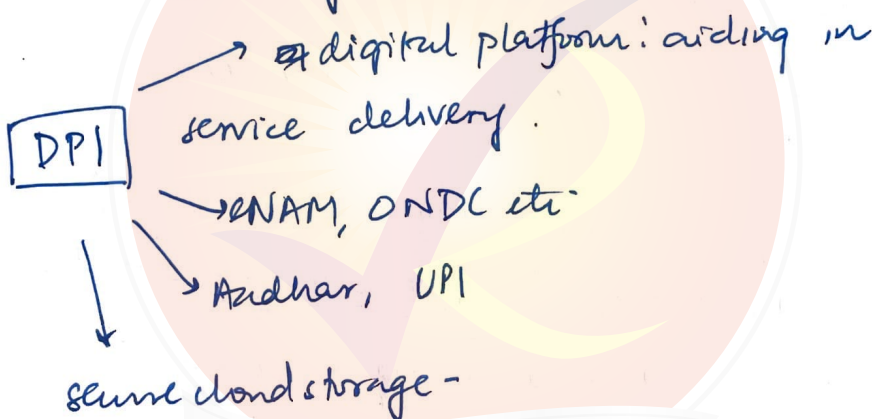 digital platform: aiding in
DPI
service delivery.
eNAM, ONDC etc
Aadhar, UPI
secure cloud storage -